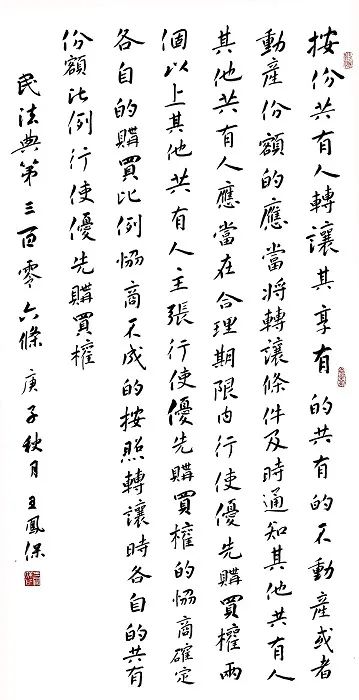 按份共有人轉讓其享有的共有的不動產或者
動產份額的應當將轉讓條件及時通知其他共有人
其他共有人應當在合理期限内行使優先購買權兩
個以上其他共有人主張行使優先購買權的恊商確定
各自的購買比例恊商不成的按照轉讓時各自的共有
份額比例行使優先購買權
民法典第三百零六條 庚子秋月王鳳保